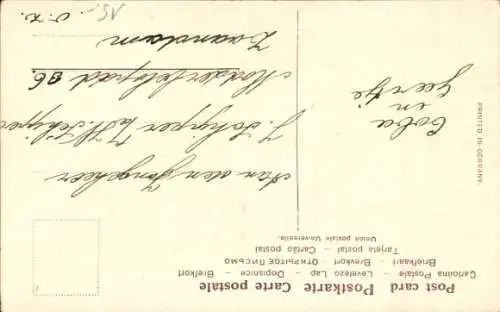 Post card Postkarte Carte postale
Cartolina Postale – Levelezo Lap – Dopisnice – Brefkort
Briefkaart – Brevkort – ОТКРЫТОЕ ПИСЬМО
Tarjeta postal – Cartão postal
Union postale Universelle.
Aan den Jongeheer
J. Schipper
Zaandam
Coba
en
Geertje
PRINTED IN GERMANY.